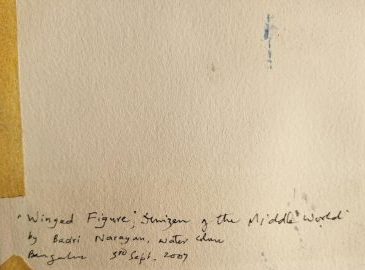 "Winged Figure", Denizen of the Middle World"
by Badri Narayan, water colour
Bangalore 3rd Sept, 2007